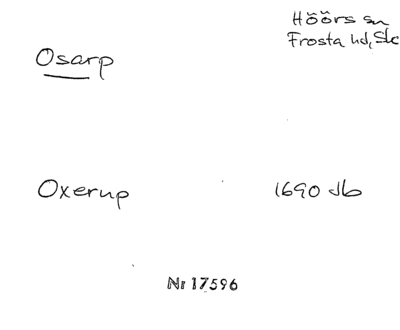 Höörs sn
Frosta hd, Sk
Osarp
Oxerup 1690 Jb
Nr 17596